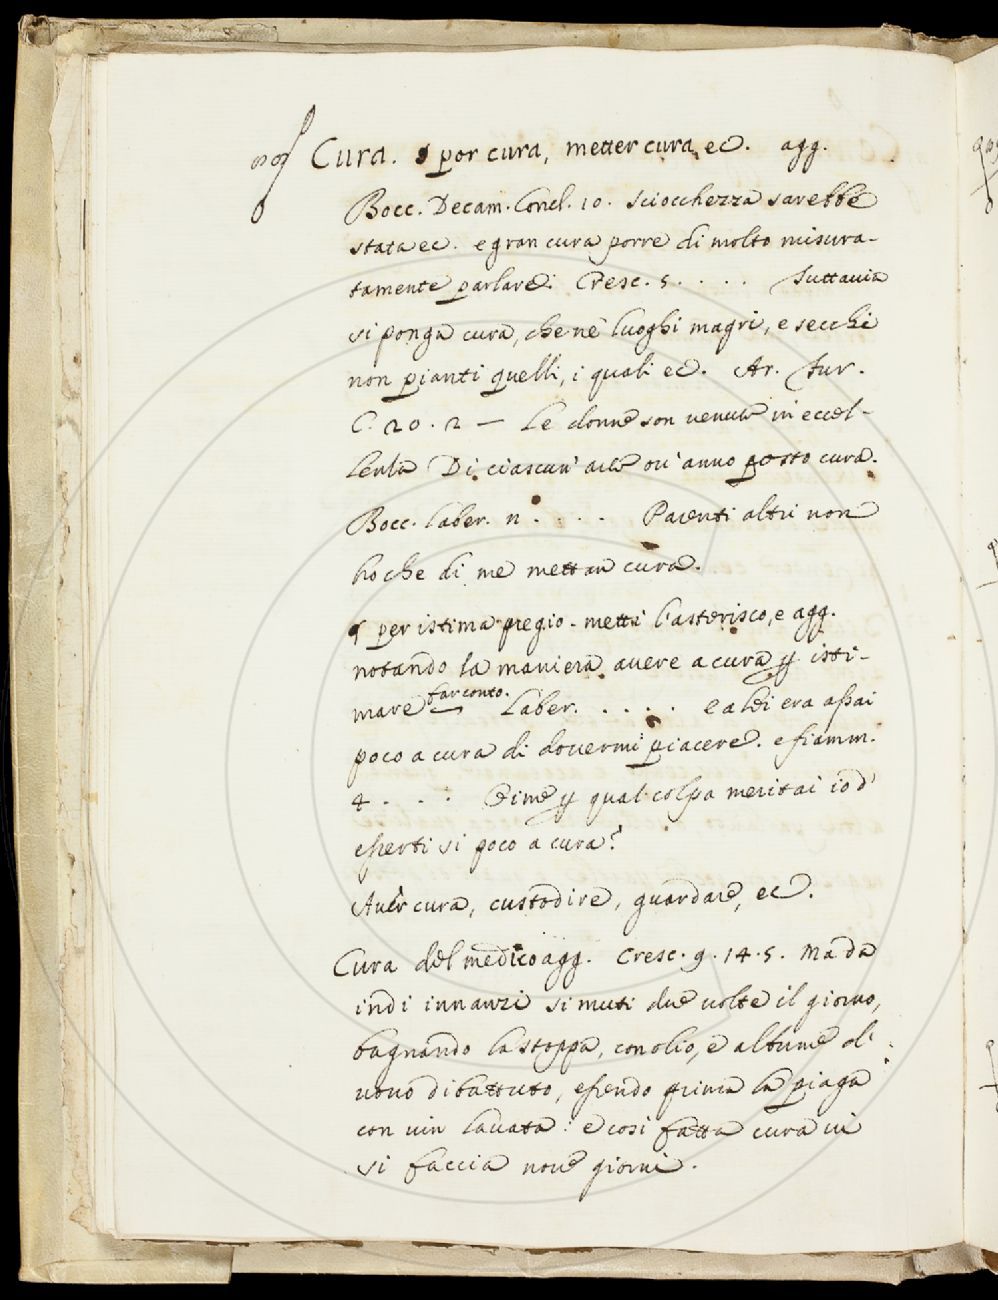 Cura. § por cura, metter cura ec. agg.
Bocc. Decam. Concl. 10. sciocchezza sarebbe
stata ec. e gran cura porre di molto misura-
tamente parlare. Cresc. 5 . . . . Tuttauia
si ponga cura, che ne' luoghi magri, e secchi
non pianti quelli, i quali ec. Ar. Fur.
C. 20. 2 — Le donne son venute in eccel-
lenza Di ciascun' arte ou' anno posto cura.
Bocc. Laber. n . . . . Parenti altri non
ho che di me mettan cura.
§ per istima pregio. metti l'asterisco, e agg.
notando la maniera auere a cura p isti-
mare far conto. Laber. . . . . e a lei era assai
poco a cura di douermi piacere. e fiamm.
4 . . . Oime p qual colpa meritai io d'
esserti si poco a cura?
Auer cura, custodire, guardare, ec.
Cura del medico agg. Cresc. 9. 14. 5. Ma da
indi innanzi si muti due uolte il giorno,
bagnando la stoppa, con olio, e albume d'
uouo dibattuto, essendo prima la piaga
con uin lauata: e cosi fatta cura ui
si faccia noue giorni.